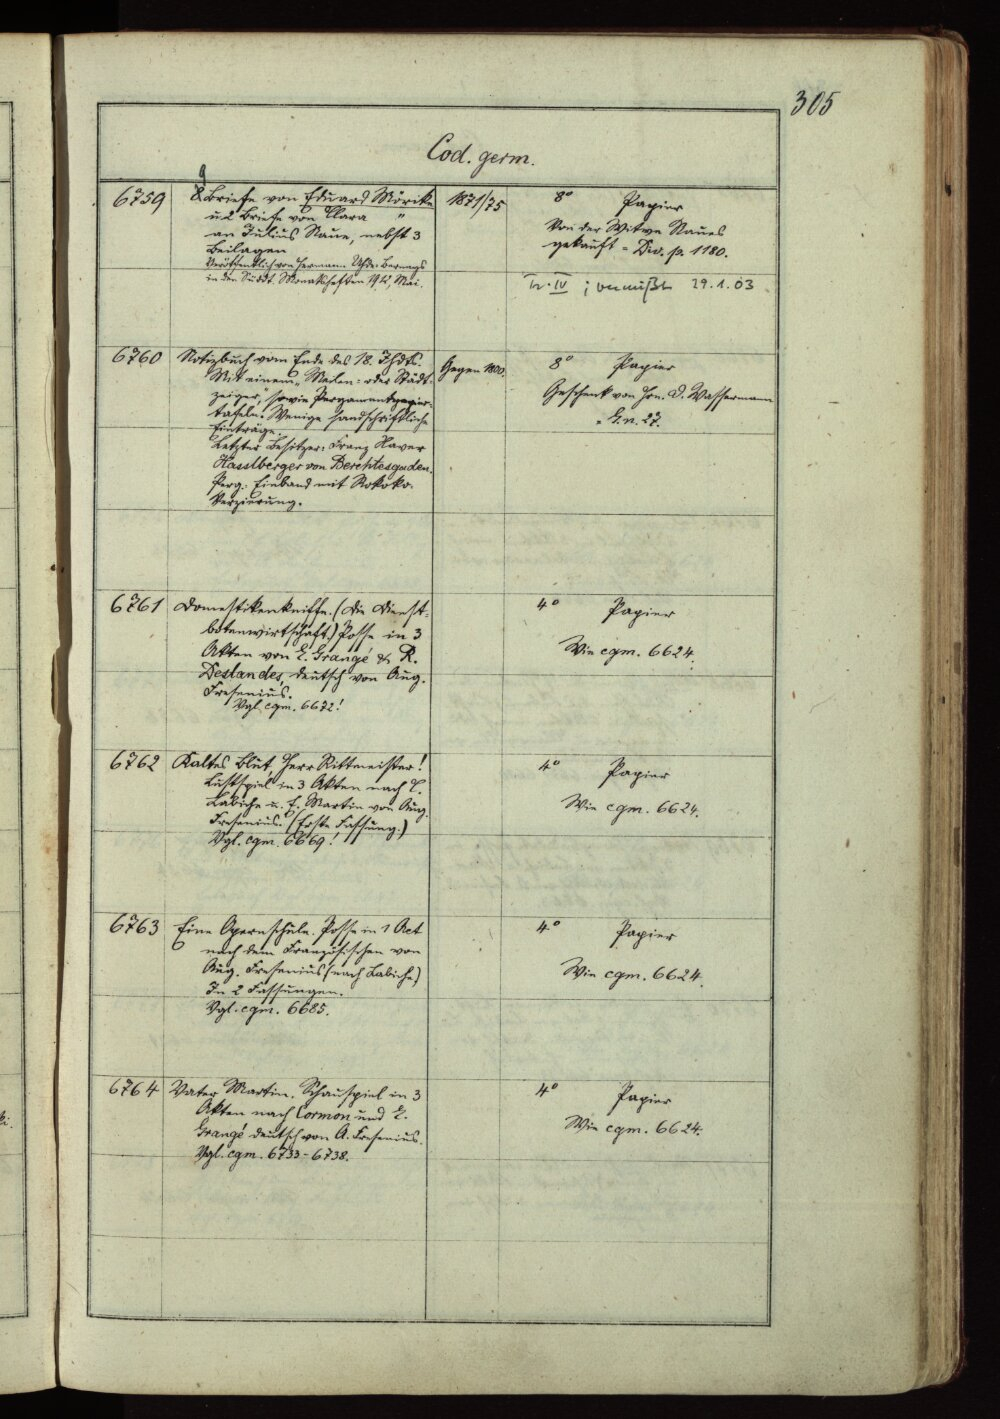 305
Cod. germ.
6759
9
8 Briefe von Eduard Mörike
u. 2 Briefe von Clara "
an Julius Naue, nebst 3
Beilagen
Veröffentlicht von Hermann Uhde-Bernays
in den Südd. Monatsheften 1912, Mai.
1871/75
8° Papier
Von der Witwe Naues
gekauft = Div. p. 1180.
IV ; vermißt 29.1.03
6760
Notizbuch vom Ende des 18. Jhdts.
Mit einem „Meilen- oder Städt-
zeiger“, sowie Pergamentpapier-
tafeln. Wenige handschriftliche
Einträge.
Letzter Besitzer: Franz Xaver
Hasslberger von Berchtesgaden.
Perg.-Einband mit Rokoko-
Verzierung.
Gegen 1800.
8° Papier
Geschenk von Hrn. D. Wassermann
= G.n. 27.
6761
Domestikenkniffe. (Die Dienst-
botenwirtschaft.) Posse in 3
Akten von E. Grangé & R.
Deslandes, deutsch von Aug.
Fresenius.
Vgl. cgm. 6672!
4° Papier
Wie cgm. 6624.
6762
Kaltes Blut, Herr Rittmeister!
Lustspiel in 3 Akten nach E.
Labiche u. E. Martin von Aug.
Fresenius. (Erste Fassung.)
Vgl. cgm. 6669!
4° Papier
Wie cgm. 6624.
6763
Eine Opernschule. Posse in 1 Act
nach dem Französischen von
Aug. Fresenius (nach Labiche)
In 2 Fassungen.
Vgl. cgm. 6685.
4° Papier
Wie cgm. 6624.
6764
Vater Martin. Schauspiel in 3
Akten nach Cormon und E.
Grangé deutsch von A. Fresenius.
Vgl. cgm. 6733-6738.
4° Papier
Wie cgm. 6624.